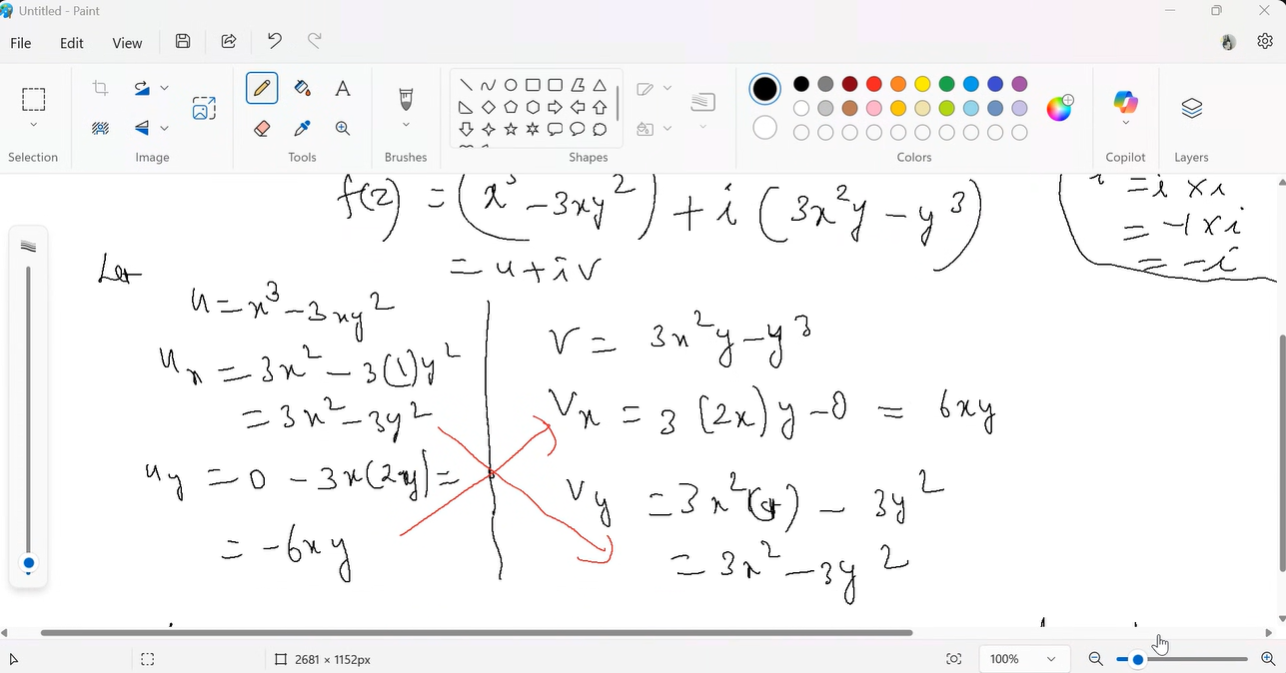 Untitled - Paint
File Edit View
Selection Image Tools Brushes Shapes Colors Copilot Layers
f(z) = (x³ - 3xy²) + i (3x²y - y³)
= u + iv
= i × i
= -1 × i
= -i
Let
u = x³ - 3xy²
u_x = 3x² - 3(1)y²
= 3x² - 3y²
u_y = 0 - 3x(2y) =
= -6xy
V = 3x²y - y³
V_x = 3 (2x) y - 0 = 6xy
V_y = 3x²(1) - 3y²
= 3x² - 3y²
2681 × 1152px
100%